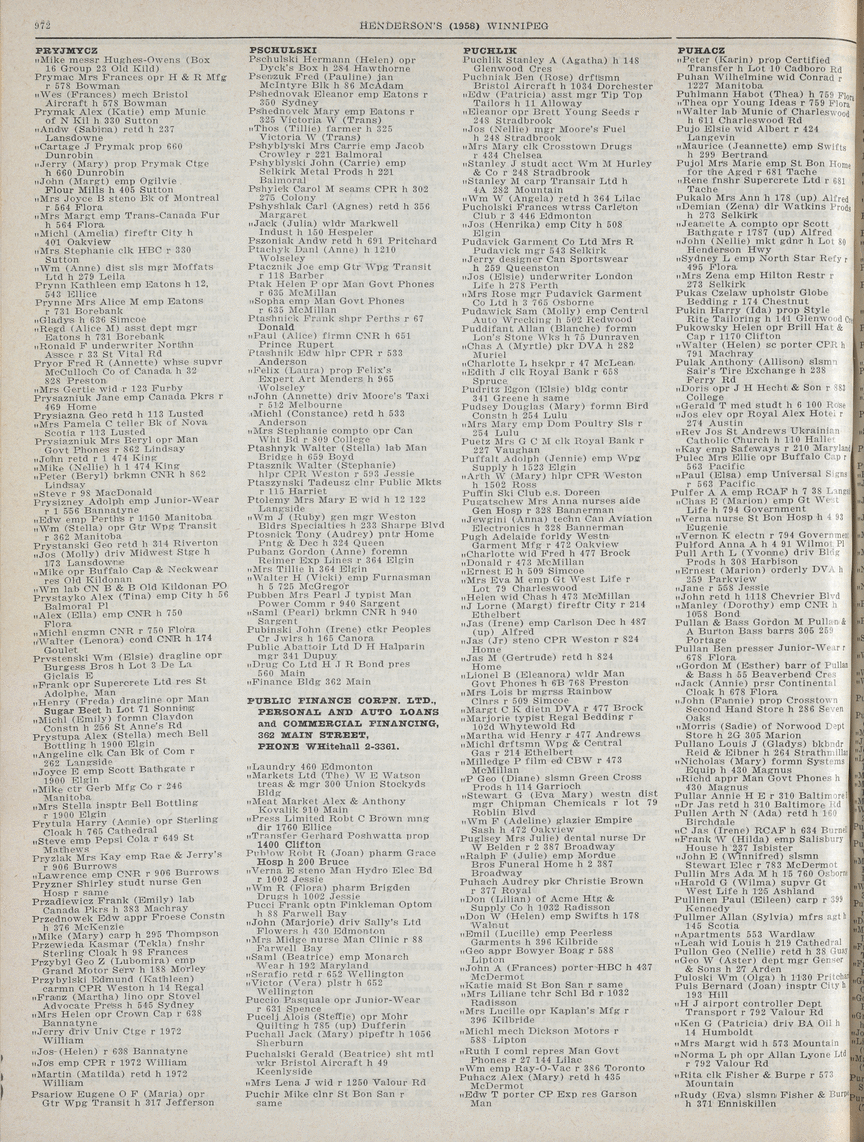 972
HENDERSON'S (1958) WINNIPEG
PRYJMYCZ
„Mike messr Hughes-Owens (Box
16 Group 23 Old Kild)
Prymac Mrs Frances opr H & R Mfg
r 578 Bowman
„Wes (Frances) mech Bristol
Aircraft h 578 Bowman
Prymak Alex (Katie) emp Munic
of N Kil h 330 Sutton
„Andw (Sabina) retd h 237
Lansdowne
„Cartage J Prymak prop 660
Dunrobin
„Jerry (Mary) prop Prymak Ctge
h 660 Dunrobin
„John (Margt) emp Ogilvie
Flour Mills h 405 Sutton
„Mrs Joyce B steno Bk of Montreal
r 564 Flora
„Mrs Margt emp Trans-Canada Fur
h 564 Flora
„Michl (Amelia) fireftr City h
401 Oakview
„Mrs Stephanie clk HBC r 330
Sutton
„Wm (Anne) dist sls mgr Moffats
Ltd h 279 Leila
Prynn Kathleen emp Eatons h 12,
543 Ellice
Prynne Mrs Alice M emp Eatons
r 731 Borebank
„Gladys h 636 Simcoe
„Regd (Alice M) asst dept mgr
Eatons h 731 Borebank
„Ronald F underwriter Northn
Assce r 33 St Vital Rd
Pryor Fred R (Annette) whse supvr
McCulloch Co of Canada h 32
828 Preston
„Mrs Gertie wid r 123 Furby
Prysazniuk Jane emp Canada Pkrs r
469 Home
Prysiazna Geo retd h 113 Lusted
„Mrs Pamela C teller Bk of Nova
Scotia r 113 Lusted
Prysiazniuk Mrs Beryl opr Man
Govt Phones r 862 Lindsay
„John retd r 1 474 King
„Mike (Nellie) h 1 474 King
„Peter (Beryl) brkmn CNR h 862
Lindsay
„Steve r 98 MacDonald
Prysizney Adolph emp Junior-Wear
r 1 556 Bannatyne
„Edw emp Perths r 1150 Manitoba
„Wm (Stella) opr Gtr Wpg Transit
r 362 Manitoba
Prystanski Geo retd h 314 Riverton
„Jos (Molly) driv Midwest Stge h
173 Lansdowne
„Mike opr Buffalo Cap & Neckwear
res Old Kildonan
„Wm lab CN B & B Old Kildonan PO
Prystayko Alex (Tina) emp City h 56
Balmoral Pl
„Alex (Ella) emp CNR h 750
Flora
„Michl engmn CNR r 750 Flora
„Walter (Lenora) cond CNR h 174
Goulet
Prystenski Wm (Elsie) dragline opr
Burgess Bros h Lot 3 De La
Giclais E
„Frank opr Supercrete Ltd res St
Adolphe, Man
„Henry (Freda) dragline opr Man
Sugar Beet h Lot 71 Sonning
„Michl (Emily) formn Claydon
Constn h 256 St Anne's Rd
Prystupa Alex (Stella) mech Bell
Bottling h 1900 Elgin
„Angeline clk Can Bk of Com r
262 Langside
„Joyce E emp Scott Bathgate r
1900 Elgin
„Mike ctr Gerb Mfg Co r 246
Manitoba
„Mrs Stella insptr Bell Bottling
r 1900 Elgin
Prytula Harry (Annie) opr Sterling
Cloak h 765 Cathedral
„Steve emp Pepsi Cola r 649 St
Mathews
Pryzlak Mrs Kay emp Rae & Jerry's
r 906 Burrows
„Lawrence emp CNR r 906 Burrows
Pryzner Shirley studt nurse Gen
Hosp r same
Przadiewicz Frank (Emily) lab
Canada Pkrs h 383 Machray
Przednowek Edw appr Froese Constn
h 376 McKenzie
„Mike (Mary) carp h 295 Thompson
Przewieda Kasmar (Tekla) fnshr
Sterling Cloak h 98 Frances
Przybyl Geo Z (Lubomira) emp
Grand Motor Serv h 188 Morley
Przybylski Edmund (Kathleen)
carmn CPR Weston h 14 Regal
„Franz (Martha) lino opr Stovel
Advocate Press h 545 Sydney
„Mrs Helen opr Crown Cap r 638
Bannatyne
„Jerry driv Univ Ctge r 1972
William
„Jos (Helen) r 638 Bannatyne
„Jos emp CPR r 1972 William
„Martin (Matilda) retd h 1972
William
Psariow Eugene O F (Maria) opr
Gtr Wpg Transit h 317 Jefferson
PSCHULSKI
Pschulski Hermann (Helen) opr
Dyck's Box h 284 Hawthorne
Psenzuk Fred (Pauline) jan
McIntyre Blk h 86 McAdam
Pshednovak Eleanor emp Eatons r
350 Sydney
Pshednovek Mary emp Eatons r
325 Victoria W (Trans)
„Thos (Tillie) farmer h 325
Victoria W (Trans)
Pshyblyski Mrs Carrie emp Jacob
Crowley r 221 Balmoral
Pshyblyski John (Carrie) emp
Selkirk Metal Prods h 221
Balmoral
Pshyiek Carol M seams CPR h 302
275 Colony
Pshyshlak Carl (Agnes) retd h 356
Margaret
„Jack (Julia) wldr Markwell
Indust h 150 Hespeler
Pszoniak Andw retd h 691 Pritchard
Ptachyk Danl (Anne) h 1210
Wolseley
Ptacznik Joe emp Gtr Wpg Transit
r 118 Barber
Ptak Helen P opr Man Govt Phones
r 635 McMillan
„Sopha emp Man Govt Phones
r 635 McMillan
Ptashnick Frank shpr Perths r 67
Donald
„Paul (Alice) firmn CNR h 651
Prince Rupert
Ptashnik Edw hlpr CPR r 533
Anderson
„Felix (Laura) prop Felix's
Expert Art Menders h 965
Wolseley
„John (Annette) driv Moore's Taxi
r 512 Melbourne
„Michl (Constance) retd h 533
Anderson
„Mrs Stephanie compto opr Can
Wht Bd r 809 College
Ptashnyk Walter (Stella) lab Man
Bridge h 659 Boyd
Ptasznik Walter (Stephanie)
hlpr CPR Weston r 593 Jessie
Ptaszynski Tadeusz clnr Public Mkts
r 115 Harriet
Ptolemy Mrs Mary E wid h 12 122
Langside
„Wm J (Ruby) gen mgr Weston
Bldrs Specialties h 233 Sharpe Blvd
Ptosnick Tony (Audrey) pntr Home
Pntg & Dec h 324 Queen
Pubanz Gordon (Anne) foremn
Reimer Exp Lines r 364 Elgin
„Mrs Tillie h 364 Elgin
„Walter H (Vicki) emp Furnasman
h 5 725 McGregor
Pubben Mrs Pearl J typist Man
Power Comm r 940 Sargent
„Saml (Pearl) brkmn CNR h 940
Sargent
Pubinski John (Irene) ctkr Peoples
Cr Jwlrs h 165 Canora
Public Abattoir Ltd D H Halparin
mgr 341 Dupuy
„Drug Co Ltd H J R Bond pres
560 Main
„Finance Bldg 362 Main
PUBLIC FINANCE CORPN. LTD.,
PERSONAL AND AUTO LOANS
and COMMERCIAL FINANCING,
362 MAIN STREET,
PHONE WHitehall 2-3361.
„Laundry 460 Edmonton
„Markets Ltd (The) W E Watson
treas & mgr 300 Union Stockyds
Bldg
„Meat Market Alex & Anthony
Kovalik 910 Main
„Press Limited Robt C Brown mng
dir 1760 Ellice
„Transfer Gerhard Poshwatta prop
1400 Clifton
Publow Robt R (Joan) pharm Grace
Hosp h 200 Bruce
„Verna E steno Man Hydro Elec Bd
r 1002 Jessie
„Wm R (Flora) pharm Brigden
Drugs h 1002 Jessie
Pucci Frank optn Finkleman Optom
h 88 Farwell Bay
„John (Marjorie) driv Sally's Ltd
Flowers h 430 Edmonton
„Mrs Midge nurse Man Clinic r 88
Farwell Bay
„Saml (Beatrice) emp Monarch
Wear h 192 Maryland
„Serafio retd r 652 Wellington
„Victor (Vera) plstr h 652
Wellington
Puccio Pasquale opr Junior-Wear
r 631 Spence
Pucelj Alois (Steffie) opr Mohr
Quilting h 785 (up) Dufferin
Puchall Jack (Mary) pipeftr h 1056
Sherburn
Puchalski Gerald (Beatrice) sht mtl
wkr Bristol Aircraft h 49
Keenlyside
„Mrs Lena J wid r 1250 Valour Rd
Puchir Mike clnr St Bon San r
same
PUCHLIK
Puchlik Stanley A (Agatha) h 148
Glenwood Cres
Puchniak Ben (Rose) drftsmn
Bristol Aircraft h 1034 Dorchester
„Edw (Patricia) asst mgr Tip Top
Tailors h 11 Alloway
„Eleanor opr Brett Young Seeds r
248 Stradbrook
„Jos (Nellie) mgr Moore's Fuel
h 248 Stradbrook
„Mrs Mary clk Crosstown Drugs
r 434 Chelsea
„Stanley J studt acct Wm M Hurley
& Co r 248 Stradbrook
„Stanley M carp Transair Ltd h
4A 282 Mountain
„Wm W (Angela) retd h 364 Lilac
Pucholski Frances wtrss Carleton
Club r 3 446 Edmonton
„Jos (Henrika) emp City h 508
Elgin
Pudavick Garment Co Ltd Mrs R
Pudavick mgr 543 Selkirk
„Jerry designer Can Sportswear
h 259 Queenston
„Jos (Elsie) underwriter London
Life h 278 Perth
„Mrs Rose mgr Pudavick Garment
Co Ltd h 3 765 Osborne
Pudawick Sam (Molly) emp Central
Auto Wrecking h 502 Redwood
Puddifant Allan (Blanche) formn
Lon's Stone Wks h 75 Dunraven
„Chas A (Myrtle) pkr DVA h 282
Muriel
„Charlotte L hsekpr r 47 McLean
„Edith J clk Royal Bank r 658
Spruce
Pudritz Egon (Elsie) bldg contr
341 Greene h same
Pudsey Douglas (Mary) formn Bird
Constn h 254 Lulu
„Mrs Mary emp Dom Poultry Sls r
254 Lulu
Puetz Mrs G C M clk Royal Bank r
227 Vaughan
Puffalt Adolph (Jennie) emp Wpg
Supply h 1523 Elgin
„Arth W (Mary) hlpr CPR Weston
h 1502 Ross
Puffin Ski Club e.s. Doreen
Pugatschew Mrs Anna nurses aide
Gen Hosp r 328 Bannerman
„Jewgini (Anna) techn Can Aviation
Electronics h 328 Bannerman
Pugh Adelaide forldy Westn
Garment Mfg r 472 Oakview
„Charlotte wid Fred h 477 Brock
„Donald r 473 McMillan
„Ernest E h 509 Simcoe
„Mrs Eva M emp Gt West Life r
Lot 79 Charleswood
„Helen wid Chas h 473 McMillan
„J Lorne (Margt) fireftr City r 214
Ethelbert
„Jas (Irene) emp Carlson Dec h 487
(up) Alfred
„Jas (Jr) steno CPR Weston r 824
Home
„Jas M (Gertrude) retd h 824
Home
„Lionel B (Eleanora) wldr Man
Govt Phones h 6B 768 Preston
„Mrs Lois br mgrss Rainbow
Clnrs r 509 Simcoe
„Margt C K dietn DVA r 477 Brock
„Marjorie typist Regal Bedding r
102d Whytewold Rd
„Martha wid Henry r 477 Andrews
„Michl drftsmn Wpg & Central
Gas r 214 Ethelbert
„Milledge P film ed CBW r 473
McMillan
„P Geo (Diane) slsmn Green Cross
Prods h 114 Garrioch
„Stewart G (Eva Mary) westn dist
mgr Chipman Chemicals r lot 79
Roblin Blvd
„Wm F (Adeline) glazier Empire
Sash h 472 Oakview
Puglsey Mrs Julie) dental nurse Dr
W Belden r 2 387 Broadway
„Ralph F (Julie) emp Mordue
Bros Funeral Home h 2 387
Broadway
Puhach Audrey pkr Christie Brown
r 377 Royal
„Don (Lilian) of Acme Htg &
Supply Co h 1032 Radisson
„Don W (Helen) emp Swifts h 178
Walnut
„Emil (Lucille) emp Peerless
Garments h 396 Kilbride
„Geo appr Bowyer Boag r 588
Lipton
„John A (Frances) porter-HBC h 437
McDermot
„Katie maid St Bon San r same
„Mrs Liliane tchr Schl Bd r 1032
Radisson
„Mrs Lucille opr Kaplan's Mfg r
396 Kilbride
„Michl mech Dickson Motors r
588 Lipton
„Ruth I coml repres Man Govt
Phones r 27 144 Lilac
„Wm emp Ray-O-Vac r 386 Toronto
Puhacz Alex (Mary) retd h 435
McDermot
„Edw T porter CP Exp res Garson
Man
PUHACZ
„Peter (Karin) prop Certified
Transfer h Lot 10 Cadboro Rd
Puhan Wilhelmine wid Conrad r
1227 Manitoba
Puhlmann Habot (Thea) h 759 Flora
„Thea opr Young Ideas r 759 Flora
„Walter lab Munic of Charleswood
h 611 Charleswood Rd
Pujo Elsie wid Albert r 424
Langevin
„Maurice (Jeannette) emp Swifts
h 299 Bertrand
Pujol Mrs Marie emp St Bon Home
for the Aged r 681 Tache
„Rene fnshr Supercrete Ltd r 681
Tache
Pukalo Mrs Ann h 178 (up) Alfred
„Demian (Zena) dlr Watkins Prods
h 273 Selkirk
„Jeanette A compto opr Scott
Bathgate r 1787 (up) Alfred
„John (Nellie) mkt gdnr h Lot 80
Henderson Hwy
„Sydney L emp North Star Refy r
495 Flora
„Mrs Zena emp Hilton Restr r
273 Selkirk
Pukas Czelaw upholstr Globe
Bedding r 174 Chestnut
Pukin Harry (Ida) prop Style
Rite Tailoring h 141 Glenwood
Pukowsky Helen opr Brill Hat &
Cap r 1170 Clifton
„Walter (Helen) sc porter CPR h
791 Machray
Pulak Anthony (Allison) slsmn
Sair's Tire Exchange h 238
Ferry Rd
„Doris opr J H Hecht & Son r 883
College
„Gerald T med studt h 6 100 Rose
„Jos elev opr Royal Alex Hotel r
274 Austin
„Rev Jos St Andrews Ukrainian
Catholic Church h 110 Hallet
„Kay emp Safeways r 210 Maryland
Pulec Mrs Ellie opr Buffalo Cap r
563 Pacific
„Paul (Elsa) emp Universal Signs
r 563 Pacific
Pulfer A A emp RCAF h 7 38
„Chas E (Marion) emp Gt West
Life h 794 Government
„Verna nurse St Bon Hosp h 4 93
Eugenie
„Vernon K electn r 794 Government
Pulford Anna A h 4 91 Wilmot Pl
Pull Arth L (Yvonne) driv Bldg
Prods h 308 Harbison
„Ernest (Marion) orderly DVA h
259 Parkview
„Jane r 558 Jessie
„John retd h 1118 Chevrier Blvd
„Manley (Dorothy) emp CNR h
1058 Bond
Pullan & Bass Gordon M Pullan &
A Burton Bass barrs 305 259
Portage
Pullan Ben presser Junior-Wear r
678 Flora
„Gordon M (Esther) barr of Pullan
& Bass h 55 Beaverbend Cres
„Jack (Annie) prsr Continental
Cloak h 678 Flora
„John (Fannie) prop Crosstown
Second Hand Store h 286 Seven
Oaks
„Morris (Sadie) of Norwood Dept
Store h 2G 305 Marion
Pullano Louis J (Gladys) bkbndr
Reid & Eibner h 264 Strathmillan
„Nicholas (Mary) formn Systems
Equip h 430 Magnus
„Richd appr Man Govt Phones h
430 Magnus
Pullar Annie H E r 310 Baltimore
„Dr Jas retd h 310 Baltimore Rd
Pullen Arth N (Ada) retd h 160
Birchdale
„C Jas (Irene) RCAF h 634
„Frank W (Hilda) emp Salisbury
House h 237 Isbister
„John E (Winnifred) slsmn
Stewart Elec r 783 McDermot
Pullin Mrs Ada M h 15 760
„Harold G (Wilma) supvr Gt
West Life h 125 Ashland
Pullinen Paul (Eileen) carp r 399
Kennedy
Pullmer Allan (Sylvia) mfrs agt h
145 Scotia
„Apartments 553 Wardlaw
„Leah wid Louis h 219 Cathedral
Pullon Geo (Nellie) retd h 38
„Geo W (Aster) dept mgr Genser
& Sons h 27 Arden
Puloski Wm (Olga) h 1130 Pritchard
Puls Bernard (Joan) insptr City h
193 Hill
„H J airport controller Dept
Transport r 792 Valour Rd
„Ken G (Patricia) driv BA Oil h
14 Humboldt
„Mrs Margt wid h 573 Mountain
„Norma L ph opr Allan Lyone Ltd
r 792 Valour Rd
„Rita clk Fisher & Burpe r 573
Mountain
„Rudy (Eva) slsmn Fisher &
h 371 Enniskillen